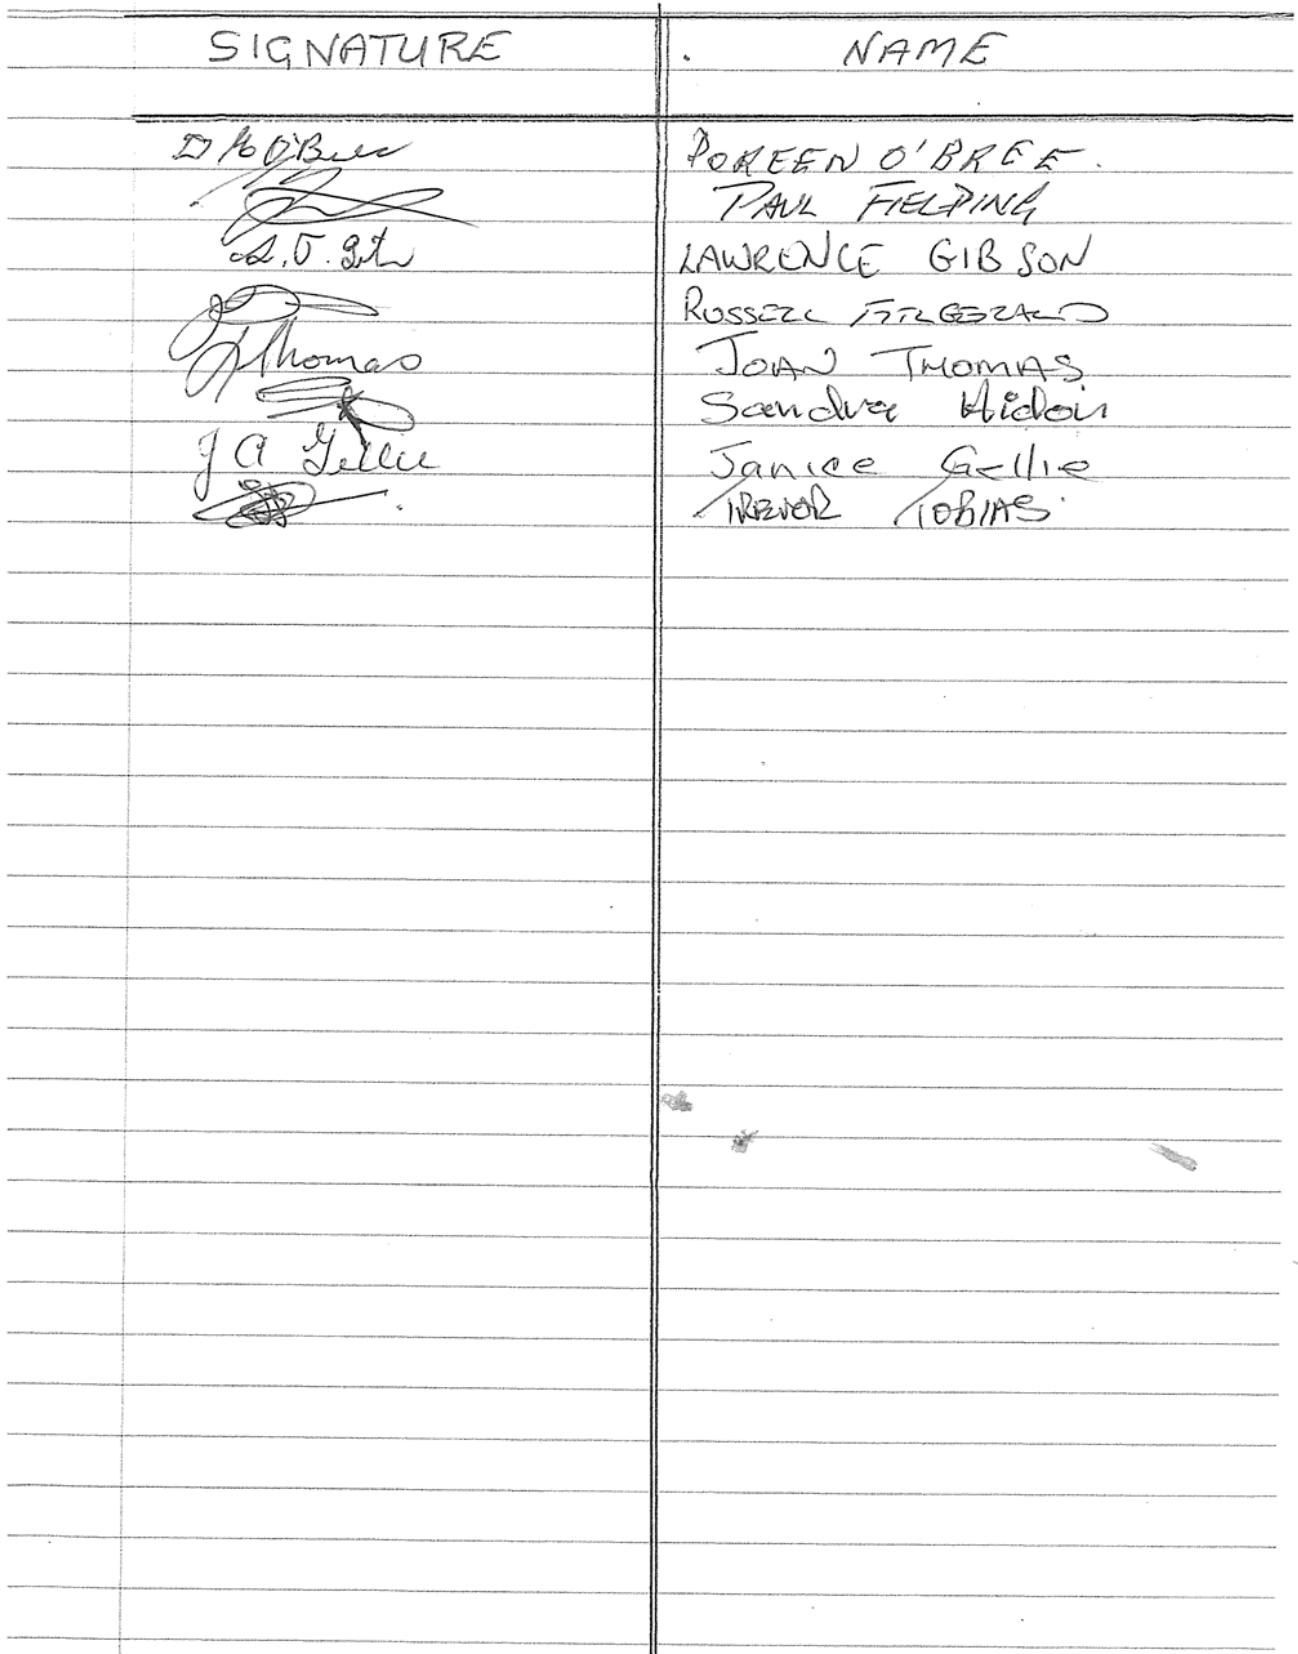 SIGNATURE NAME
DOREEN O'BREE.
PAUL FIELDING
LAWRENCE GIBSON
RUSSELL FITZGERALD
Thomas JOAN THOMAS
Sandra
J A Gellie Janice Gellie
TREVOR TOBIAS.